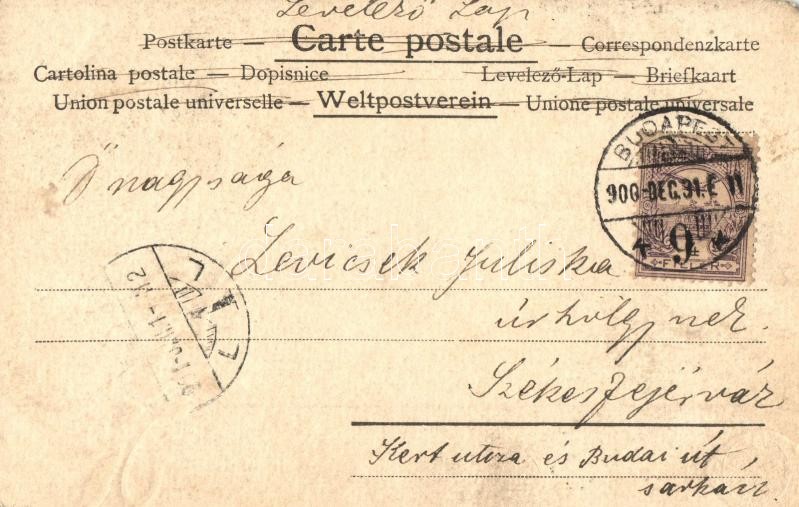 Levelező Lap
Postkarte — Carte postale — Correspondenzkarte
Cartolina postale — Dopisnice Levelező-Lap — Briefkaart
Union postale universelle — Weltpostverein — Unione postale universale
BUDAPEST
900 DEC. 31. E 11
9
FILLÉR
Ő nagysága
Levicsek Juliska
úrhölgynek
Székesfejérvár
Kert utcza és Budai út
sarkán